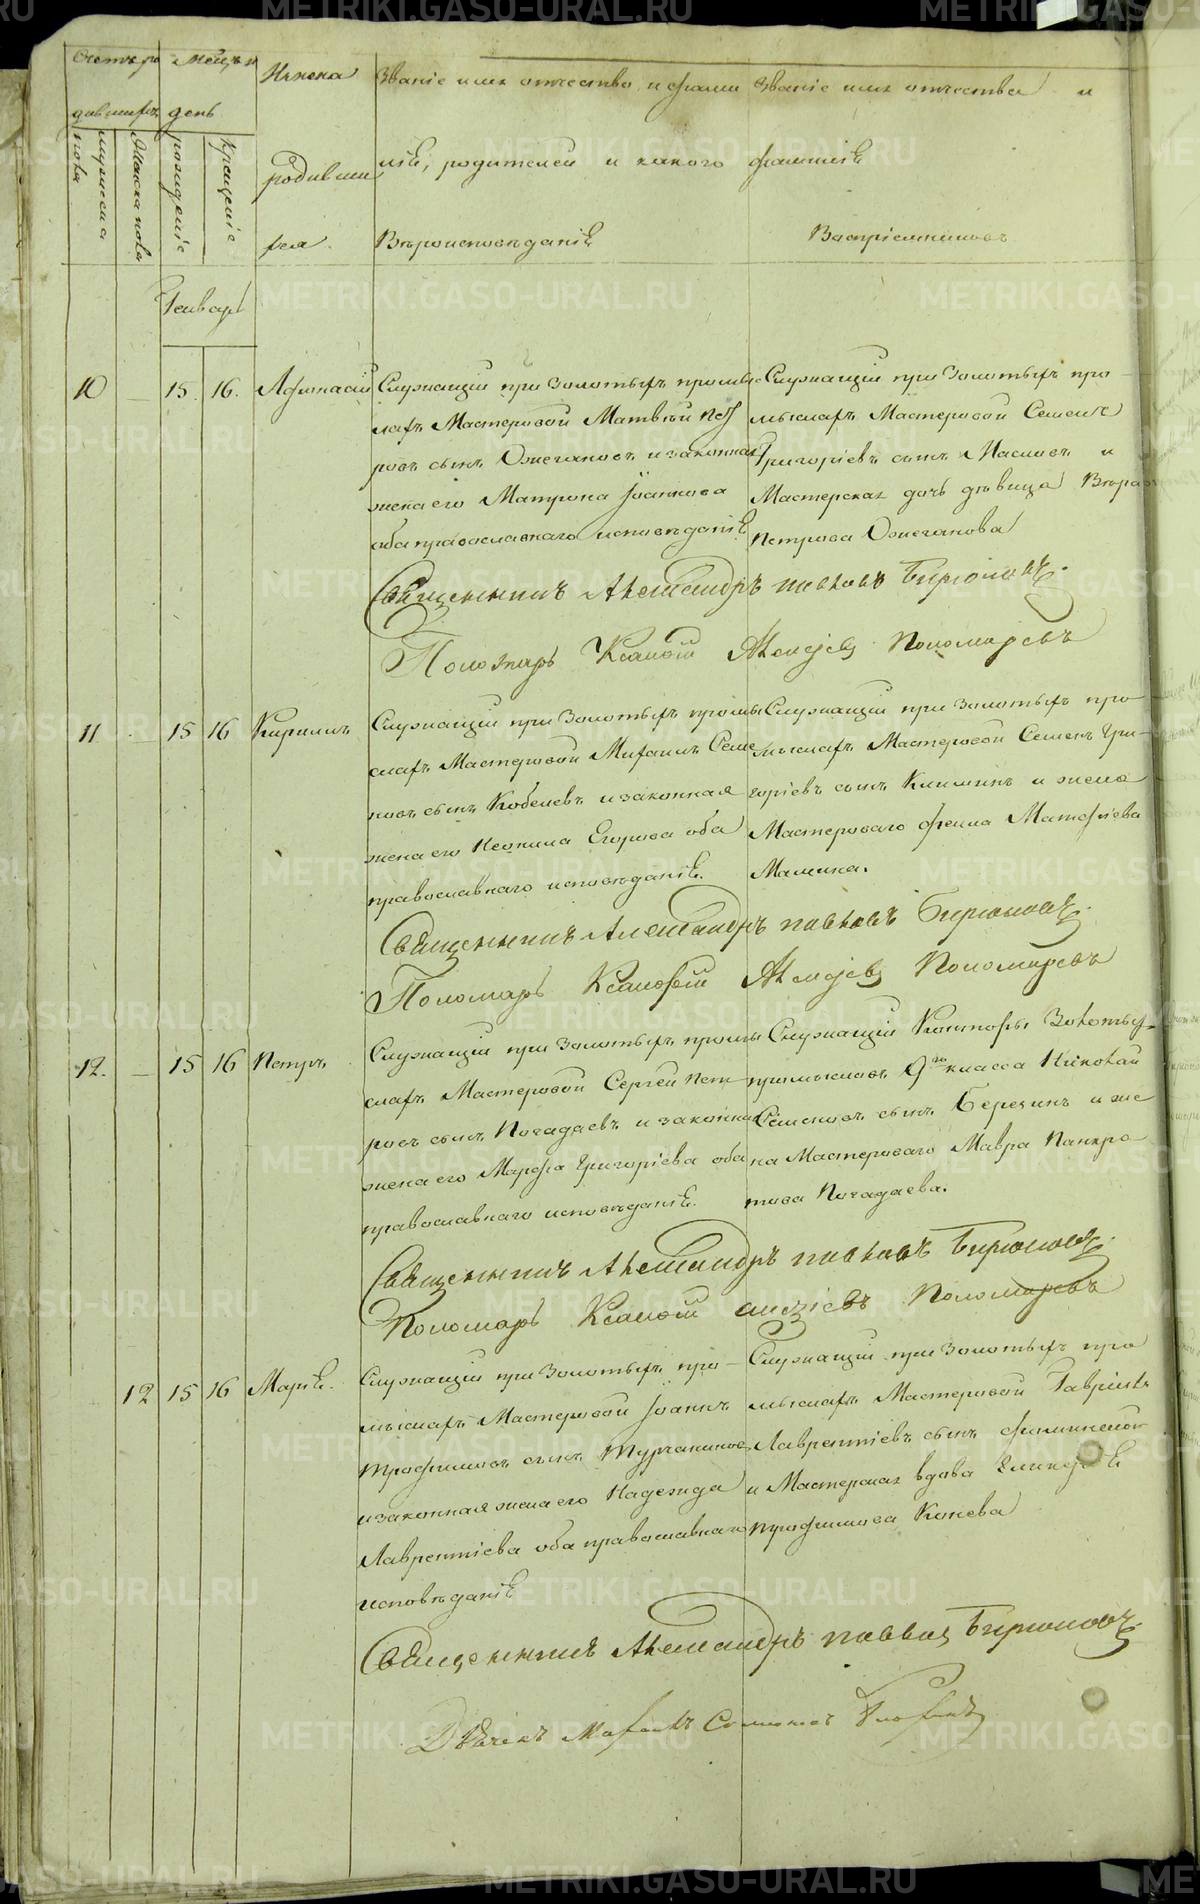 Счетъ ро Мѣсяцъ и
дившихся день
мужеска пола
женска пола
рожденіе
крещеніе
Имена
родивши
хся.
Званіе имя отчество и фами
лія, родителей и какого
Вѣроисповѣданія
Званіе имя отчество и
фамилія
Воспріемниковъ
Генварь
10 — 15. 16. Афанасій
Служащій при Золотыхъ промы
слахъ Мастеровой Матвѣй Пет
ровъ сынъ Ожегановъ и законная
жена его Матрона Іоаннова
оба православнаго исповѣданія.
Служащій при Золотыхъ про
мыслахъ Мастеровой Семенъ
Григоріевъ сынъ Масловъ и
Мастерская дочь дѣвица
Петрова Ожеганова
Священникъ Александръ Павловъ Бирюковъ.
Пономарь Алексѣевъ Пономаревъ
11 — 15 16 Кириллъ
Служащій при Золотыхъ промы
слахъ Мастеровой Михаилъ Семе
новъ сынъ Кобелевъ и законная
жена его Неонила Егорова оба
православнаго исповѣданія.
Служащій при Золотыхъ про
мыслахъ Мастеровой Семенъ Гри-
горіевъ сынъ и жена
Мастероваго Матфіева
Мамина.
Священникъ Александръ Павловъ Бирюковъ.
Пономарь Алексѣевъ Пономаревъ
12. — 15 16 Петръ
Служащій при Золотыхъ промы
слахъ Мастеровой Сергей Пет
ровъ сынъ Погадаевъ и законная
жена его Марфа Григоріева оба
православнаго исповѣданія.
Служащій Конторы Золотыхъ
промысловъ 9го класса Николай
Семеновъ сынъ Березинъ и же
на Мастероваго Мавра Панкра
това Погадаева.
Священникъ Александръ Павловъ Бирюковъ.
Пономарь Алексіевъ Пономаревъ
12 15 16 Марія.
Служащій при Золотыхъ про
мыслахъ Мастеровой Іоаннъ
Трофимовъ сынъ
и законная жена его Надежда
Лаврентіева оба православнаго
исповѣданія
Служащій при Золотыхъ про
мыслахъ Мастеровой Гавріилъ
Лаврентіевъ сынъ
и Мастерская вдова Гликерія
Трофимова Конева
Священникъ Александръ Павловъ Бирюковъ.
METRIKI.GASO-URAL.RU